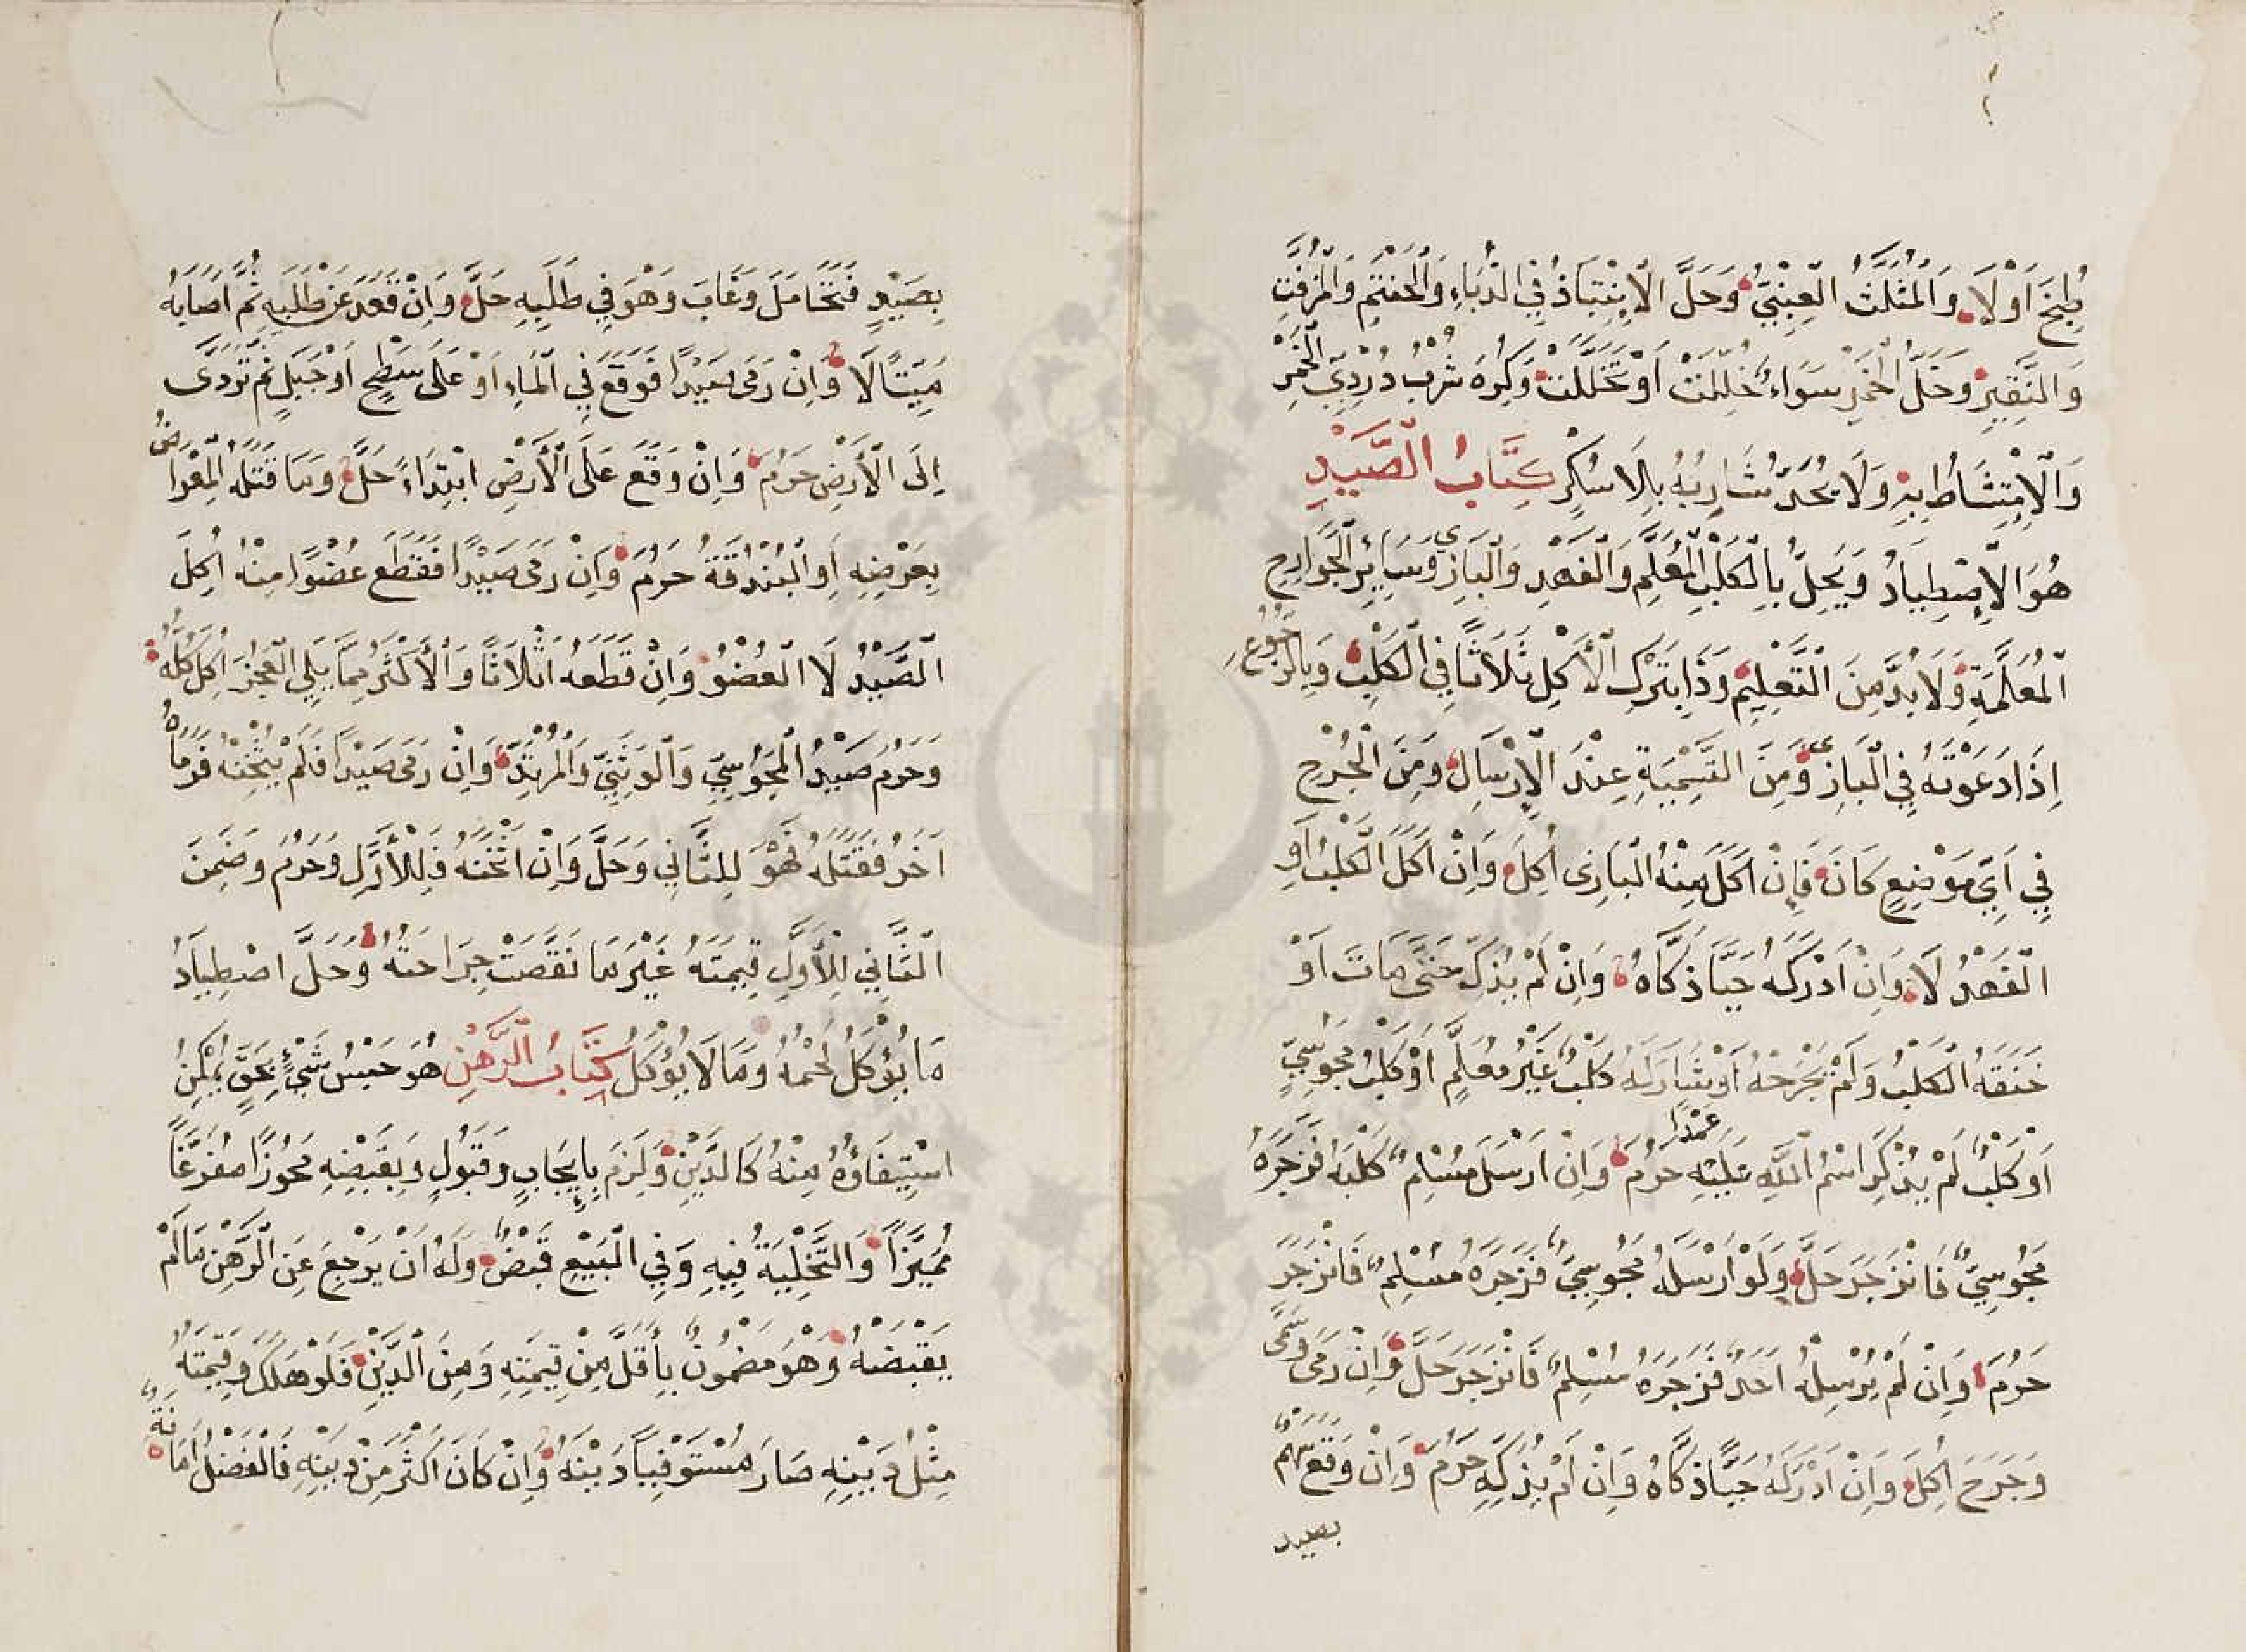 طُبِخَ اَوْ لَا وَالْمُثَلَّثُ الْعِنَبِيُّ وَحَلَّ الْاِنْتِبَاذُ فِي الدُّبَّاءِ وَالْحَنْتَمِ وَالْمُزَفَّتِ
وَالنَّقِيرِ وَخَلُّ الْخَمْرِ سَوَاءٌ خُلِّلَتْ اَوْ تَخَلَّلَتْ وَكُرِهَ شُرْبُ دُرْدِيِّ الْخَمْرِ
وَالْاِمْتِشَاطُ بِهِ وَلَا يُحَدُّ شَارِبُهُ بِلَا سُكْرٍ كِتَابُ الصَّيْدِ
هُوَ الْاِصْطِيَادُ وَيَحِلُّ بِالْكَلْبِ الْمُعَلَّمِ وَالْفَهْدِ وَالْبَازِي وَسَائِرِ الْجَوَارِحِ
الْمُعَلَّمَةِ وَلَا بُدَّ مِنَ التَّعْلِيمِ وَذَا بِتَرْكِ الْأَكْلِ ثَلَاثًا فِي الْكَلْبِ وَبِالرُّجُوعِ
اِذَا دَعَوْتَهُ فِي الْبَازِي وَمِنَ التَّسْمِيَةِ عِنْدَ الْاِرْسَالِ وَمِنَ الْجُرْحِ
فِي اَيِّ مَوْضِعٍ كَانَ فَاِنْ اَكَلَ مِنْهُ الْبَازِى اُكِلَ وَاِنْ اَكَلَ الْكَلْبُ اَوِ
الْفَهْدُ لَا وَاِنْ اَدْرَكَهُ حَيًّا ذَكَّاهُ وَاِنْ لَمْ يُذَكِّهِ حَتَّى مَاتَ اَوْ
خَنَقَهُ الْكَلْبُ وَلَمْ يَجْرَحْهُ اَوْ شَارَكَهُ كَلْبٌ غَيْرُ مُعَلَّمٍ اَوْ كَلْبُ مَجُوسِيٍّ
اَوْ كَلْبٌ لَمْ يُذْكَرِ اسْمُ اللّٰهِ عَلَيْهِ عَمْدًا حَرُمَ وَاِنْ اَرْسَلَ مُسْلِمٌ كَلْبَهُ فَزَجَرَهُ
مَجُوسِيٌّ فَانْزَجَرَ حَلَّ وَلَوْ اَرْسَلَهُ مَجُوسِيٌّ فَزَجَرَهُ مُسْلِمٌ فَانْزَجَرَ
حَرُمَ وَاِنْ لَمْ يُرْسِلْهُ اَحَدٌ فَزَجَرَهُ مُسْلِمٌ فَانْزَجَرَ حَلَّ وَاِنْ رَمَى وَسَمَّى
وَجَرَحَ اُكِلَ وَاِنْ اَدْرَكَهُ حَيًّا ذَكَّاهُ وَاِنْ لَمْ يُذَكِّهِ حَرُمَ وَاِنْ وَقَعَ سَهْمٌ
بصيد
بِصَيْدٍ فَتَحَامَلَ وَغَابَ وَهُوَ فِي طَلَبِهِ حَلَّ وَاِنْ قَعَدَ عَنْ طَلَبِهِ ثُمَّ اَصَابَهُ
مَيِّتًا لَا وَاِنْ رَمَى صَيْدًا فَوَقَعَ فِي الْمَاءِ اَوْ عَلَى سَطْحٍ اَوْ جَبَلٍ ثُمَّ تَرَدَّى
اِلَى الْأَرْضِ حَرُمَ وَاِنْ وَقَعَ عَلَى الْأَرْضِ ابْتِدَاءً حَلَّ وَمَا قَتَلَهُ الْمِعْرَاضُ
بِعَرْضِهِ اَوِ الْبُنْدُقَةُ حَرُمَ وَاِنْ رَمَى صَيْدًا فَقَطَعَ عُضْوًا مِنْهُ اُكِلَ
الصَّيْدُ لَا الْعُضْوُ وَاِنْ قَطَعَهُ اَثْلَاثًا وَالْأَكْثَرُ مِمَّا يَلِي الْعَجُزَ اُكِلَ كُلُّهُ
وَحَرُمَ صَيْدُ الْمَجُوسِيِّ وَالْوَثَنِيِّ وَالْمُرْتَدِّ وَاِنْ رَمَى صَيْدًا فَلَمْ يُثْخِنْهُ فَرَمَاهُ
اَخَرُ فَقَتَلَهُ فَهُوَ لِلثَّانِي وَحَلَّ وَاِنْ اَثْخَنَهُ فَلِلْأَوَّلِ وَحَرُمَ وَضَمِنَ
الثَّانِي لِلْأَوَّلِ قِيمَتَهُ غَيْرَ مَا نَقَصَتْ جِرَاحَتُهُ وَحَلَّ اصْطِيَادُ
مَا يُؤْكَلُ لَحْمُهُ وَمَا لَا يُؤْكَلُ كِتَابُ الرَّهْنِ هُوَ حَبْسُ شَيْءٍ بِحَقٍّ يُمْكِنُ
اسْتِيفَاؤُهُ مِنْهُ كَالدَّيْنِ وَلَزِمَ بِاِيجَابٍ وَقَبُولٍ وَبِقَبْضِهِ مَحُوزًا مُفَرَّغًا
مُمَيَّزًا وَالتَّخْلِيَةُ فِيهِ وَفِي الْبَيْعِ قَبْضٌ وَلَهُ اَنْ يَرْجِعَ عَنِ الرَّهْنِ مَا لَمْ
يَقْبِضْهُ وَهُوَ مَضْمُونٌ بِأَقَلَّ مِنْ قِيمَتِهِ وَمِنَ الدَّيْنِ فَلَوْ هَلَكَ وَقِيمَتُهُ
مِثْلُ دَيْنِهِ صَارَ مُسْتَوْفِيًا دَيْنَهُ وَاِنْ كَانَ اَكْثَرَ مِنْ دَيْنِهِ فَالْفَضْلُ اَمَانَةٌ